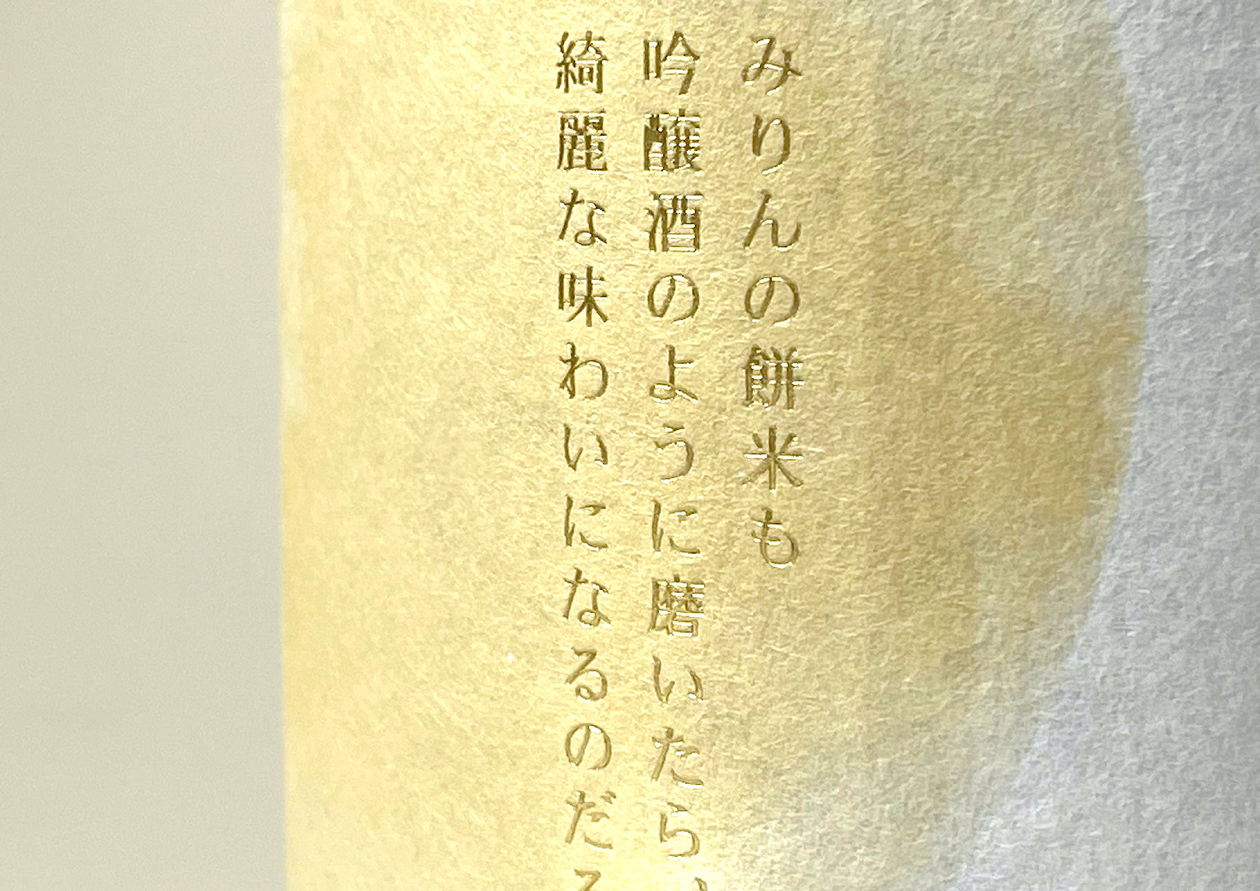 みりんの餅米も
吟醸酒のように磨いたら
綺麗な味わいになるのだ